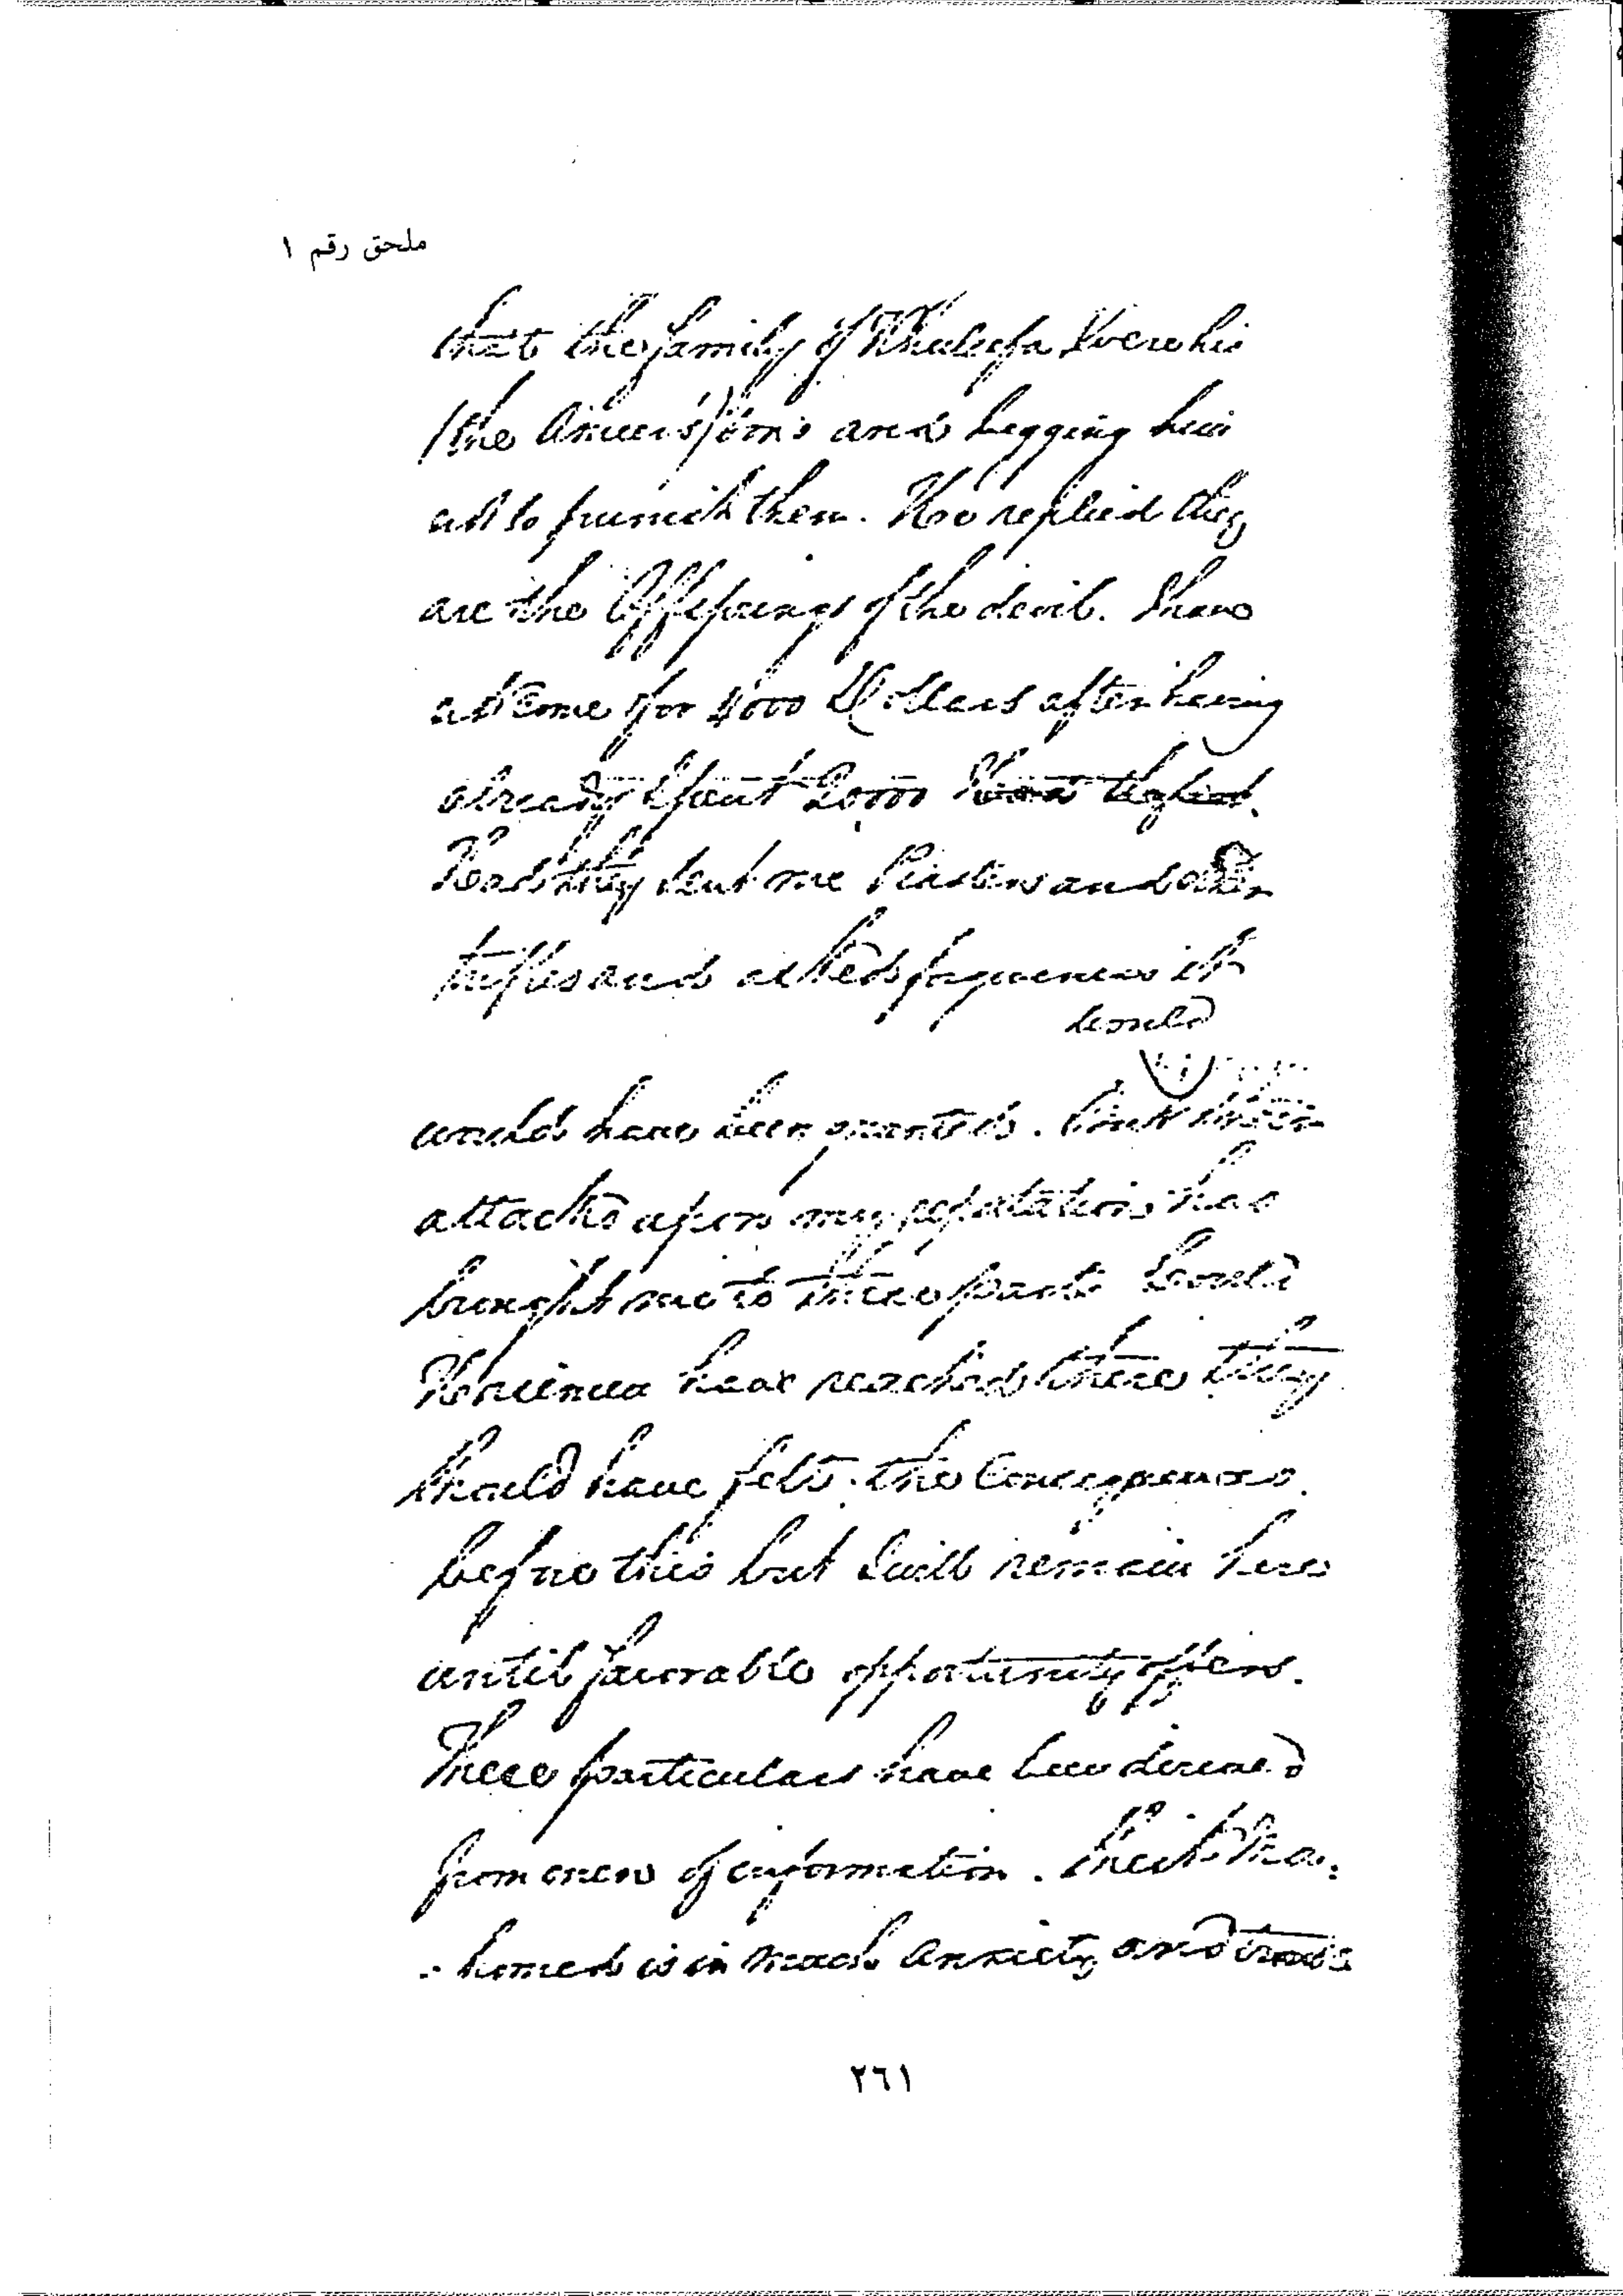 ملحق رقم ١
that the family of Khaleefa were his
(the Ameer's) sons and begging him
not to punish them. He replied they
are the Offsprings of the devil. I have
not come for 4000 Dollars after having
already spent 20,000
Had they sent me and other
trifles and asked forgiveness it
would
would have been granted. But
attack upon my reputation has
brought me to these parts Could
have reached there they
should have felt the Consequences
before this but I will remain here
until favorable opportunity offers.
These particulars have been derived
from of information. Sheik Ma:
-homed is in much anxiety and
٢٦١